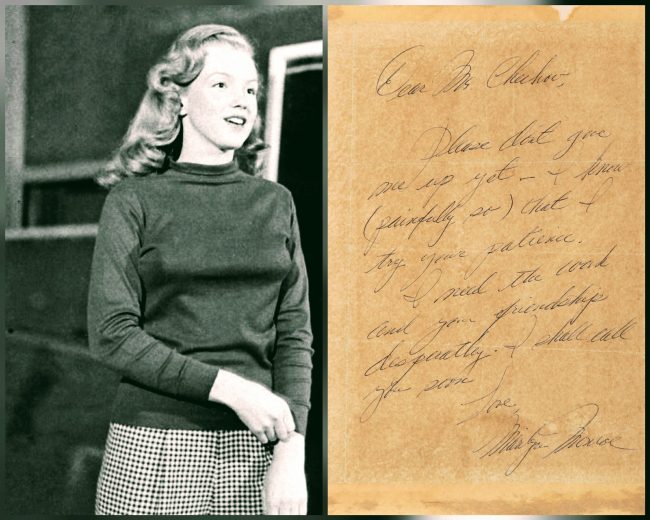 Dear Mr Chekhov,
Please dont give
me up yet — I know
(painfully so) that I
try your patience.
I need the work
and your friendship
desperatly. I shall call
you soon
Love,
Marilyn Monroe